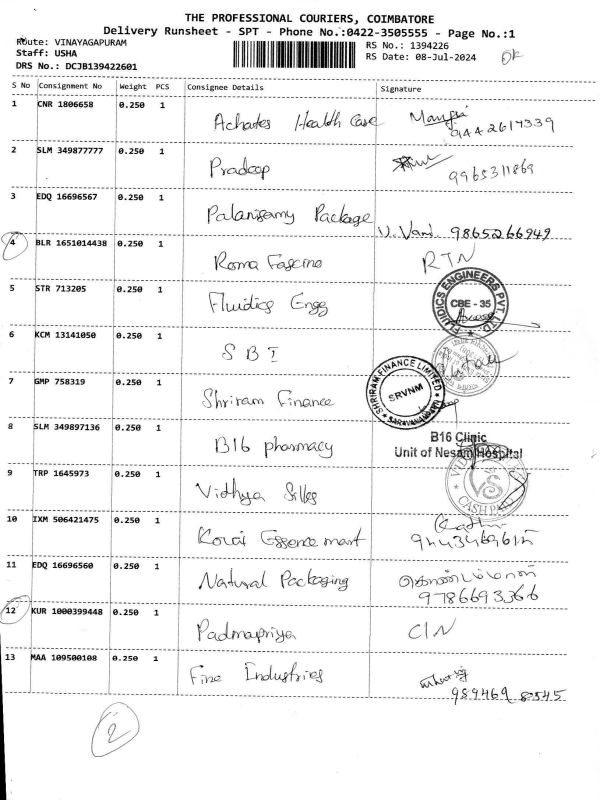 THE PROFESSIONAL COURIERS, COIMBATORE
Delivery Runsheet - SPT - Phone No.:0422-3505555 - Page No.:1
Route: VINAYAGAPURAM
RS No.: 1394226
Staff: USHA
RS Date: 08-Jul-2024
OK
DRS No.: DCJB139422601
S No Consignment No Weight PCS Consignee Details Signature
1 CNR 1806658 0.250 1 Achates Health Case
9442617339
2 SLM 349877777 0.250 1 Pradeep
9965311869
3 EDQ 16696567 0.250 1 Palanisamy Package
9865266949
4 BLR 1651014438 0.250 1 Roma Fascino RTN
5 STR 713205 0.250 1 Fluidics Engg
FLUIDICS ENGINEERS PVT LTD
CBE - 35
6 KCM 13141050 0.250 1 SBI
7 GMP 758319 0.250 1 Shriram Finance
SHRIRAM FINANCE LIMITED
SRVNM
8 SLM 349897136 0.250 1 B16 pharmacy
B16 Clinic
Unit of Nesam Hospital
9 TRP 1645973 0.250 1 Vidhya Silks
VS
10 IXM 506421475 0.250 1 Kovai Essence mart
11 EDQ 16696560 0.250 1 Natural Packaging
9786693366
12 KUR 1000399448 0.250 1 Padmapriya CIN
13 MAA 109500108 0.250 1 Fine Industries
989469 8545
2